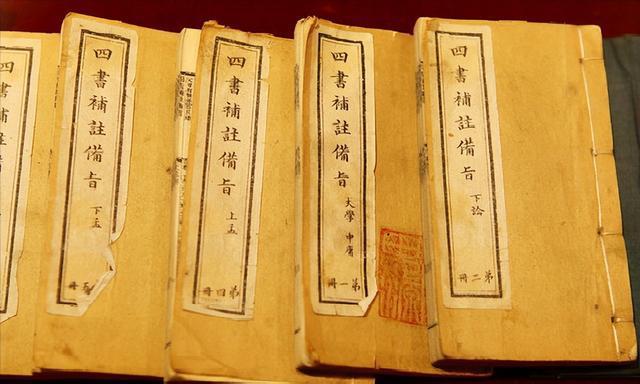 四書補註備旨 下論
第二冊
四書補註備旨 大學 中庸
第一冊
四書補註備旨 上孟
第四冊
四書補註備旨 下孟
冊
四書補註備旨